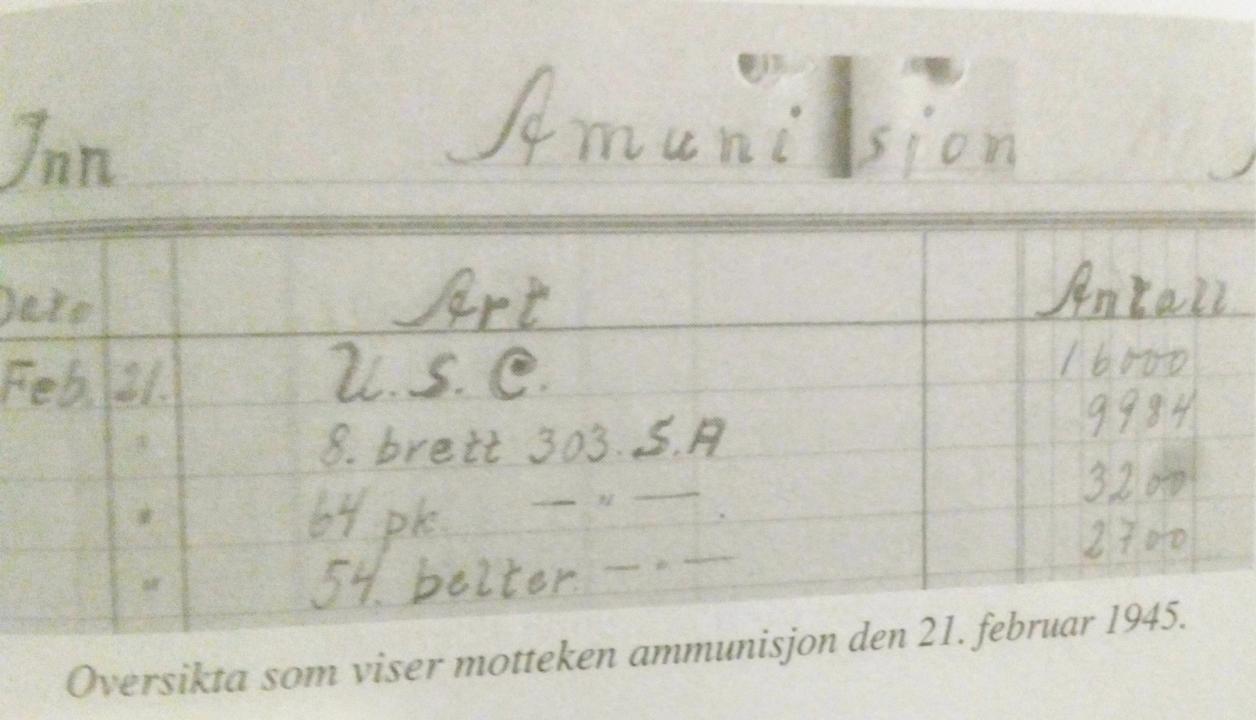 Inn Amunisjon
Dato Art Antall
Feb. 21. U.S.C. 16000
" 8. brett 303. S.A 9984
" 64 pk. — " — 3200
" 54. belter. — " — 2700
Oversikta som viser motteken ammunisjon den 21. februar 1945.